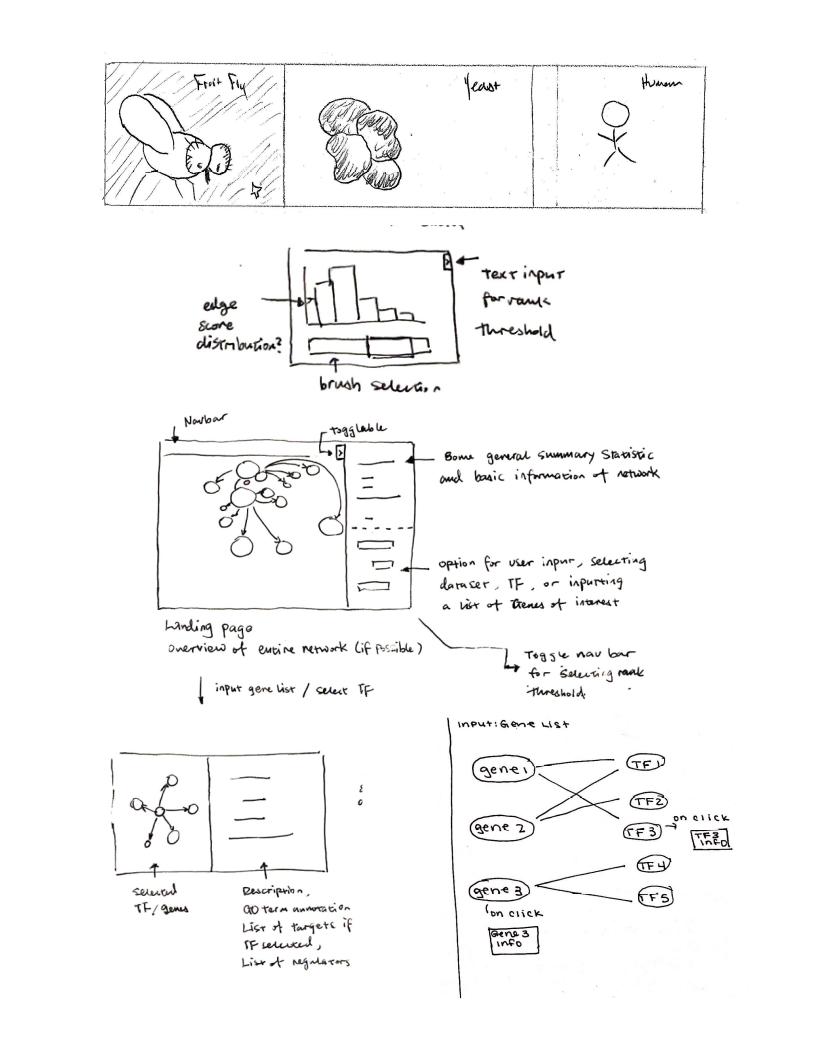 Fruit Fly
Yeast
Human
text input
for rank
threshold
edge
score
distribution?
brush selection
Navbar
togglable
Some general summary statistic
and basic information of network
option for user input, selecting
dataset, TF, or inputting
a list of genes of interest
Landing page
overview of entire network (if possible)
Toggle nav bar
for selecting rank
threshold.
input gene list / select TF
selected
TF/genes
Description,
GO term annotation
List of targets if
TF selected,
List of regulators
input: Gene List
gene 1
TF1
TF2
gene 2
TF3
on click
TF3
info
TF4
gene 3
TF5
on click
Gene 3
info